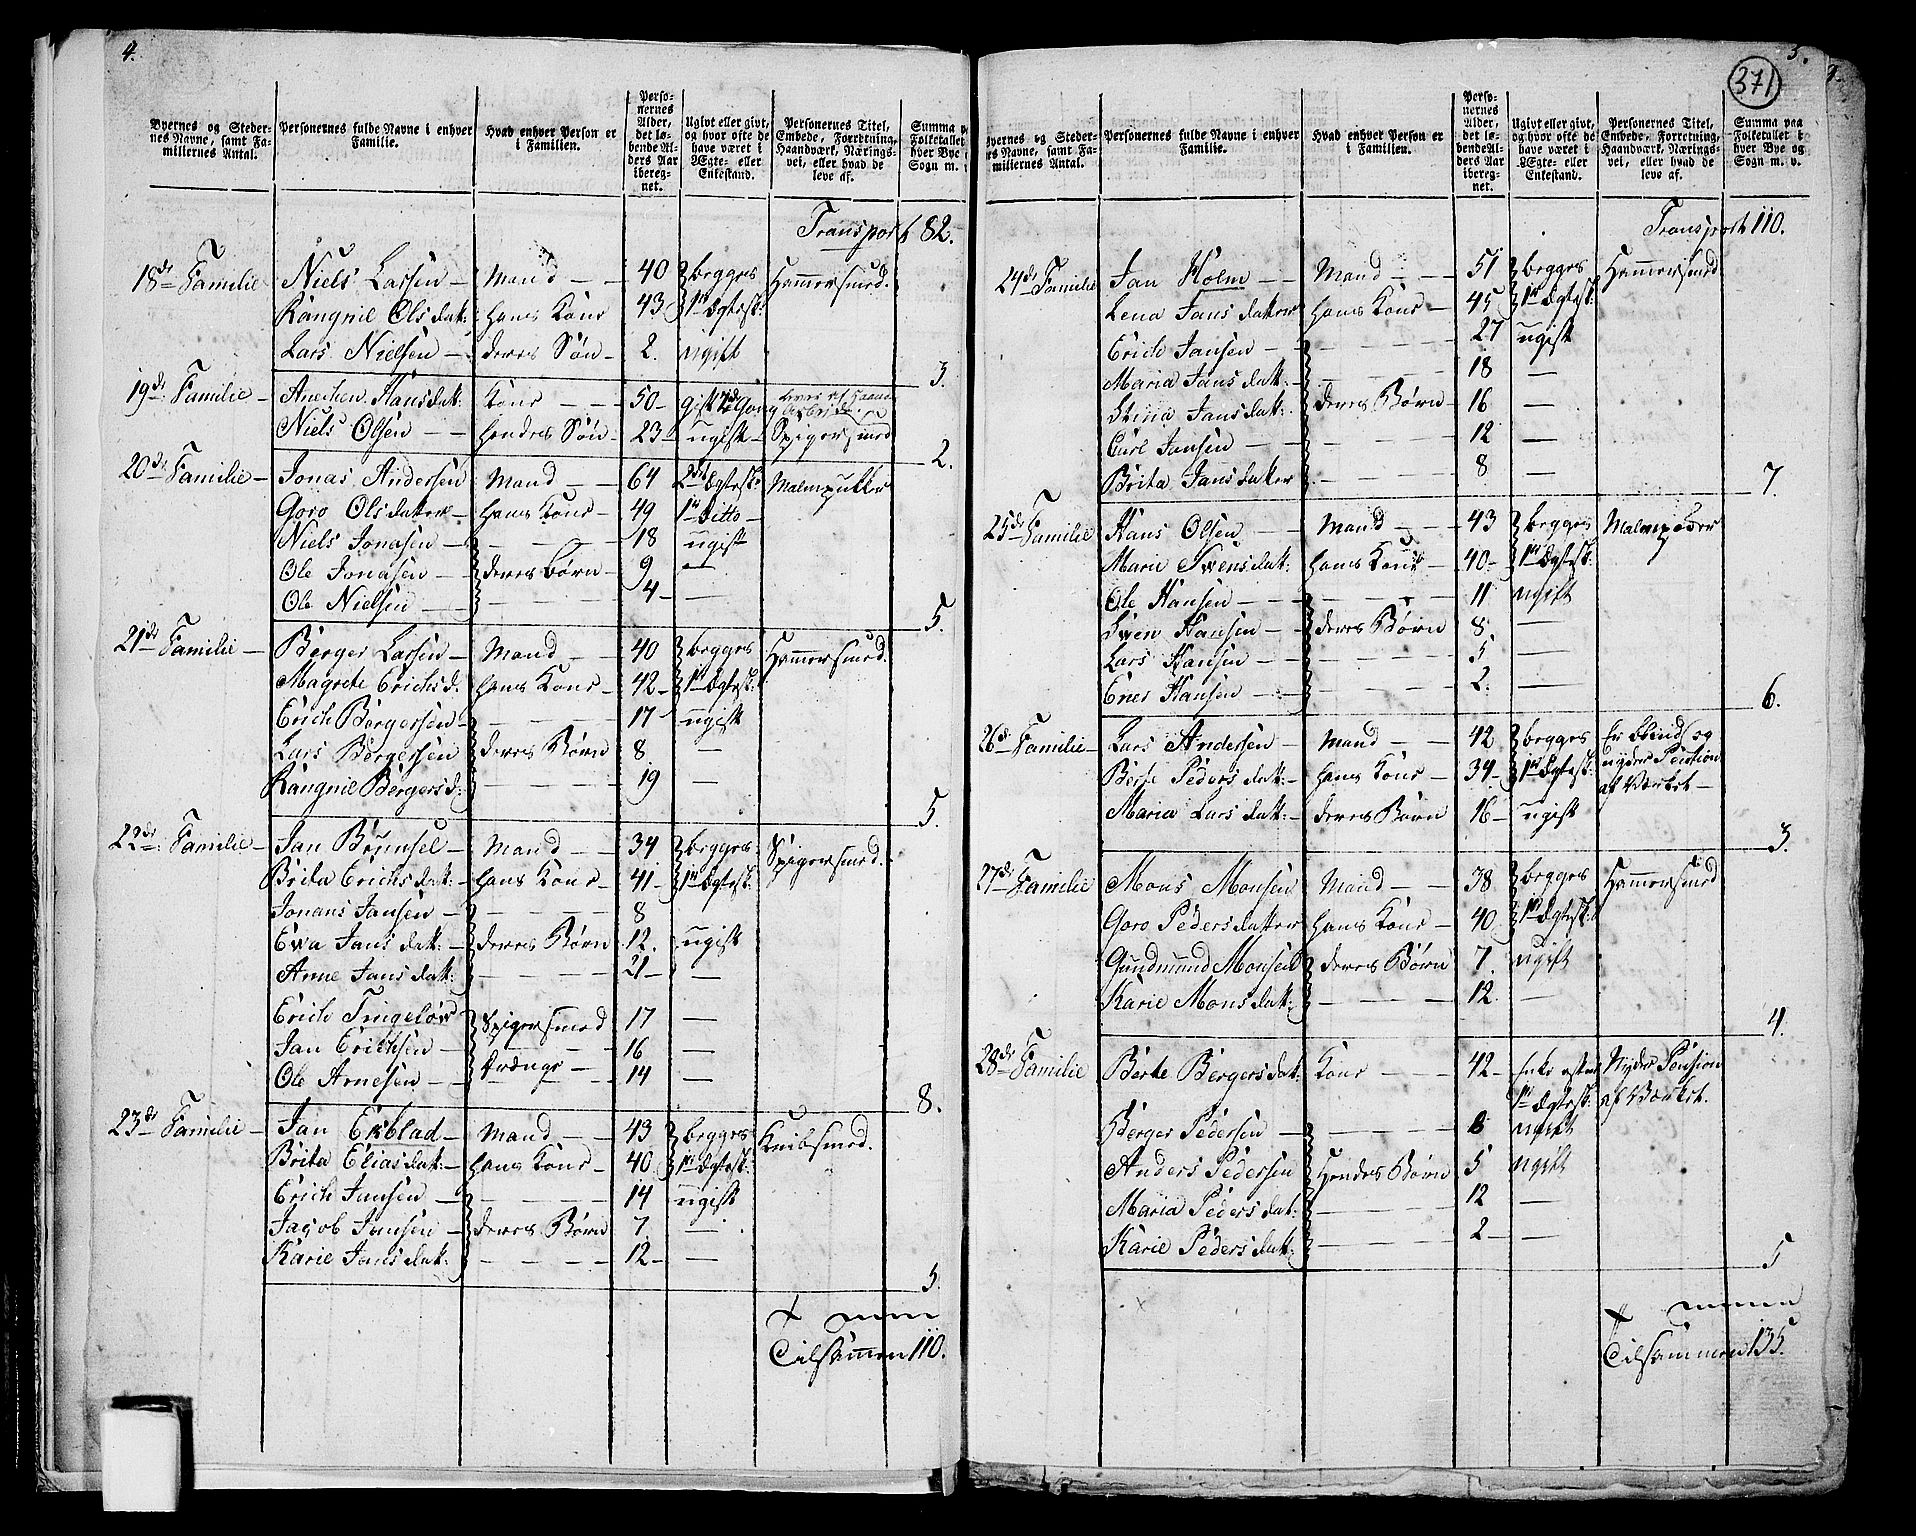 4.
Byernes og Steder-
nes Navne, samt Fa-
miliernes Antal.
Personernes fulde Navne i enhver
Familie.
Hvad enhver Person er
i Familien.
Perso-
nernes
Alder,
det lø-
bende Al-
ders Aar
ibereg-
net.
Ugivt eller givt,
og hvor ofte de
have været i
Ægte- eller
Enkestand.
Personernes Titel,
Embede, Forretning,
Haandværk, Nærings-
vei, eller hvad de
leve af.
Summa pa
Folketallet
hver Bye
Sogn m.
Transport 82.
18de Familie Niels Larsen Mand 40 begges Hammersmed.
Rangnil Olsdat: hans Kone 43 1te Ægtesk:
Lars Nielsen deres Søn 2. ugift
3.
19de Familie Anechen Hansdat: Kone 50 gift 2de Gang Lever af Haand Arbeide
Niels Olsen hendes Søn 23 ugift Spigersmed
2.
20de Familie Jonas Andersen Mand 64 2det Ægtesk: Malmpukker
Goro Olsdatter hans Kone 49 1te ditto
Niels Jonasen 18 ugift
Ole Jonasen deres børn 9 —
Ole Nielsen 4 —
5.
21de Familie Børger Larsen Mand 40 begges Hammersmed.
Magrete Erichsd. hans Kone 42 1te Ægtesk:
Erich Børgersen 17 ugift
Lars Børgersen deres Børn 8 —
Rangnil Børgersd: 19 —
5.
22de Familie Jan Brunsel Mand 34 begges Spigersmed.
Brita Erichsdat: hans Kone 41 1te Ægtesk:
Jonans Jansen 8
Ewa Jansdat: deres Børn 12. ugift
Anne Jansdat: 21 —
Erich Tingelöv Spigersmed 17 —
Jan Erichsen 16 —
Ole Arnesen Drænge 14 —
8.
23de Familie Jan Ekblad Mand 43 begges Knibsmed.
Brita Eliasdat: hans Kone 40 1te Ægtesk:
Erich Jansen 14 ugift
Jacob Jansen deres Børn 7. —
Karie Jansdat: 12 —
5.
Tilsammen 110.
371
5.
Byernes og Steder-
nes Navne, samt Fa-
miliernes Antal.
Personernes fulde Navne i enhver
Familie.
Hvad enhver Person er
i Familien.
Perso-
nernes
Alder,
det lø-
bende Al-
ders Aar
ibereg-
net.
Ugivt eller givt,
og hvor ofte de
have været i
Ægte- eller
Enkestand.
Personernes Titel,
Embede, Forretning,
Haandværk, Nærings-
vei, eller hvad de
leve af.
Summa paa
Folketallet i
hver Bye og
Sogn m. v.
Transport 110.
24de Familie Jan Holm Mand 51 begges Hammersmed
Lena Jansdatter hans Kone 45 1te Ægtesk:
Erich Jansen 27 ugift
Maria Jansdat: 18 —
Stina Jansdat: deres Børn 16 —
Carl Jansen 12 —
Brita Jansdatter 8 —
7.
25de Familie Hans Olsen Mand 43 begges
Marie Swensdat: hans Kone 40 1te Ægtesk:
Ole Hansen 11 ugift
Swen Hansen deres Børn 8 —
Lars Hansen 5 —
Ener Hansen 2. —
6.
26de Familie Lars Andersen Mand 42 begges Er blind og
Berte Pedersdat: hans Kone 34 1te Ægtesk: nyder Pention
Maria Larsdat: deres Børn 16 ugift af Værket
3.
27de Familie Mons Monsen Mand 38 begges Hammersmed
Goro Pedersdatter hans Kone 40 1te Ægtesk:
Gundmund Monsen deres Børn 7. ugift
Karie Monsdat: 12. —
4.
28de Familie Berte Børgersdat: Kone 42 Enke efter Nyder Pention
1te Ægtesk: af Værket.
Børger Pedersen 8 ugift
Anders Pedersen Hendes Børn 5 ugift
Maria Pedersdat: 12 —
Karie Pedersdat: 2 —
5
Tilsammen 135.